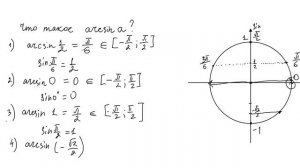 что такое arcsin a?
1) arcsin 1/2 = π/6 ∈ [-π/2; π/2]
sin π/6 = 1/2
2) arcsin 0 = 0 ∈ [-π/2; π/2]
sin 0° = 0
3) arcsin 1 = π/2 ∈ [-π/2; π/2]
sin π/2 = 1
4) arcsin (-√2/2)
sin
1
π/2
5π/6
1/2
π/6
0
-√2/2
-1